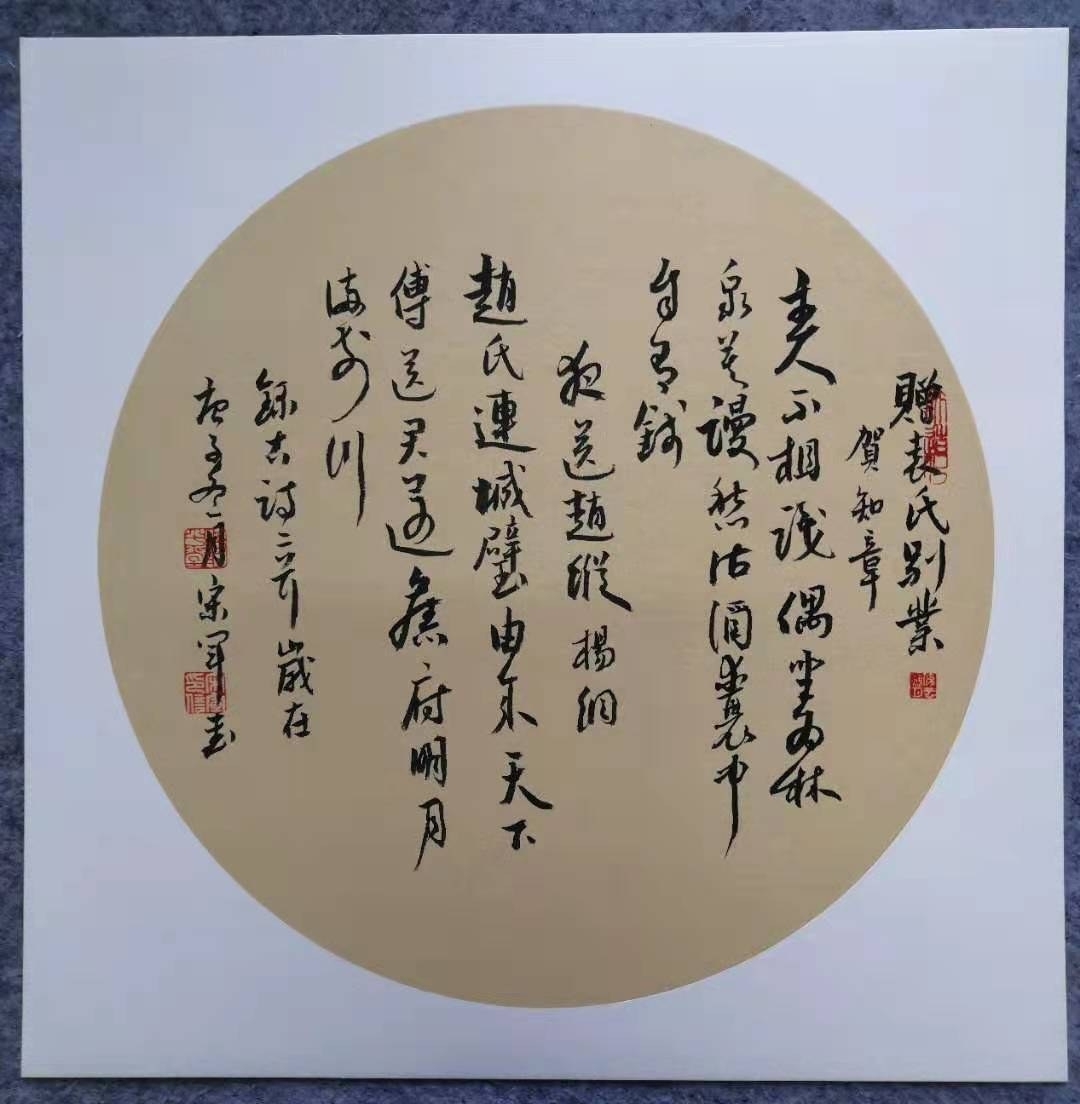 贈袁氏別業
賀知章
主人不相識偶坐為林
泉莫謾愁沽酒囊中
自有錢
夜送趙縱 楊炯
趙氏連城璧由來天下
傳送君還舊府明月
滿前川
錄古詩二首歲在
庚子冬月宋軍書